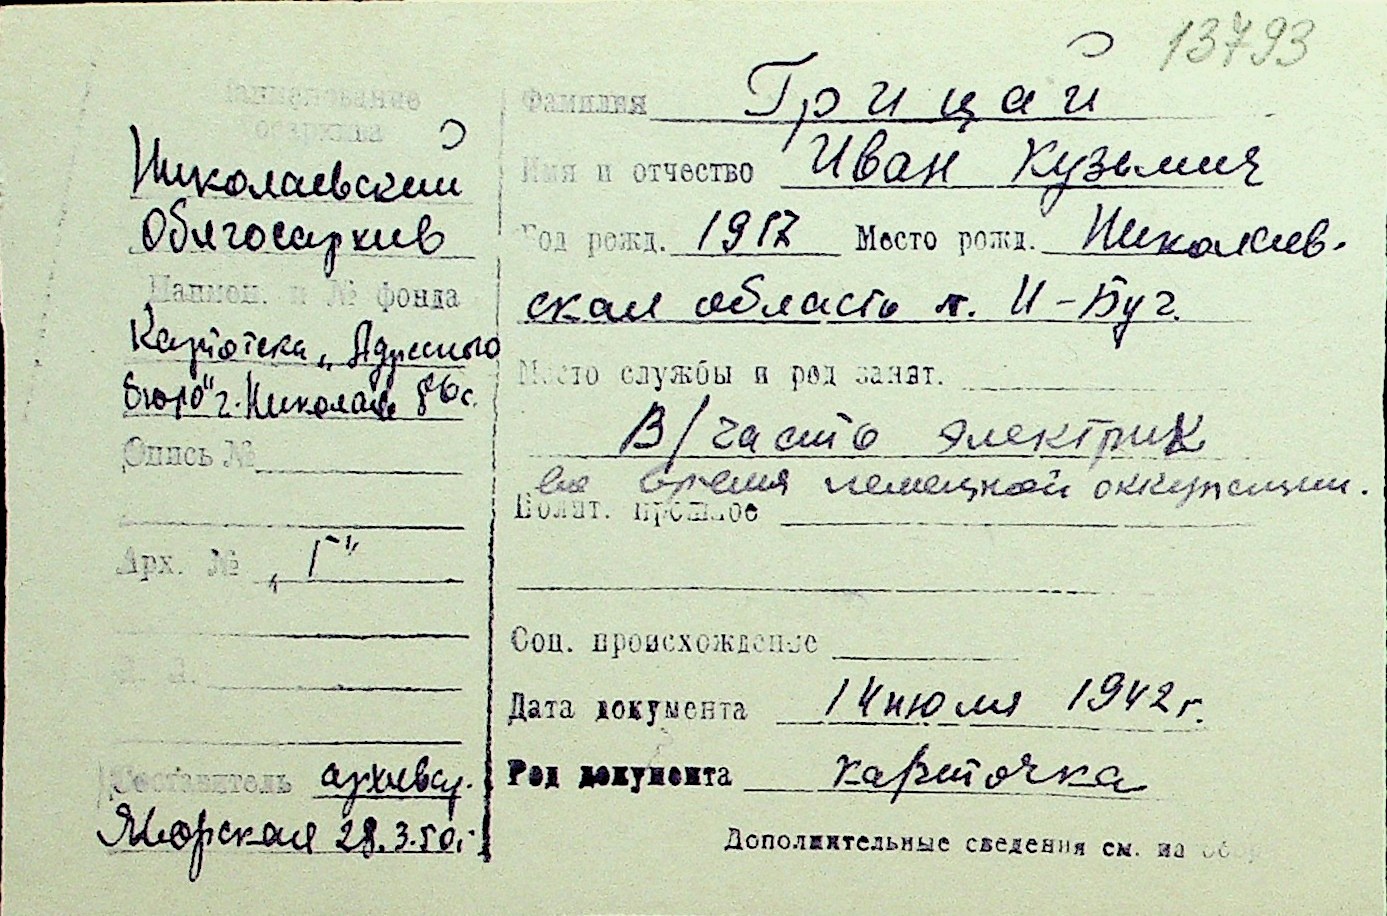 13793
Наименование
госархива
Николаевский
Облгосархив
Наимен. и № фонда
Картотека „Адресного
бюро" г. Николаев
Опись №
Арх. № „Г"
Л. Л.
Составитель архивар.
Яворская 28.3.50г.
Фамилия Грицай
Имя и отчество Иван Кузьмич
Год рожд. 1917 Место рожд. Николаев-
ская область п. И-Буг.
Место службы и род занят.
В/часть электрик
во время немецкой оккупации.
Полит. прошлое
Соц. происхождение
Дата документа 14 июля 1942 г.
Род документа карточка
Дополнительные сведения см. на обор